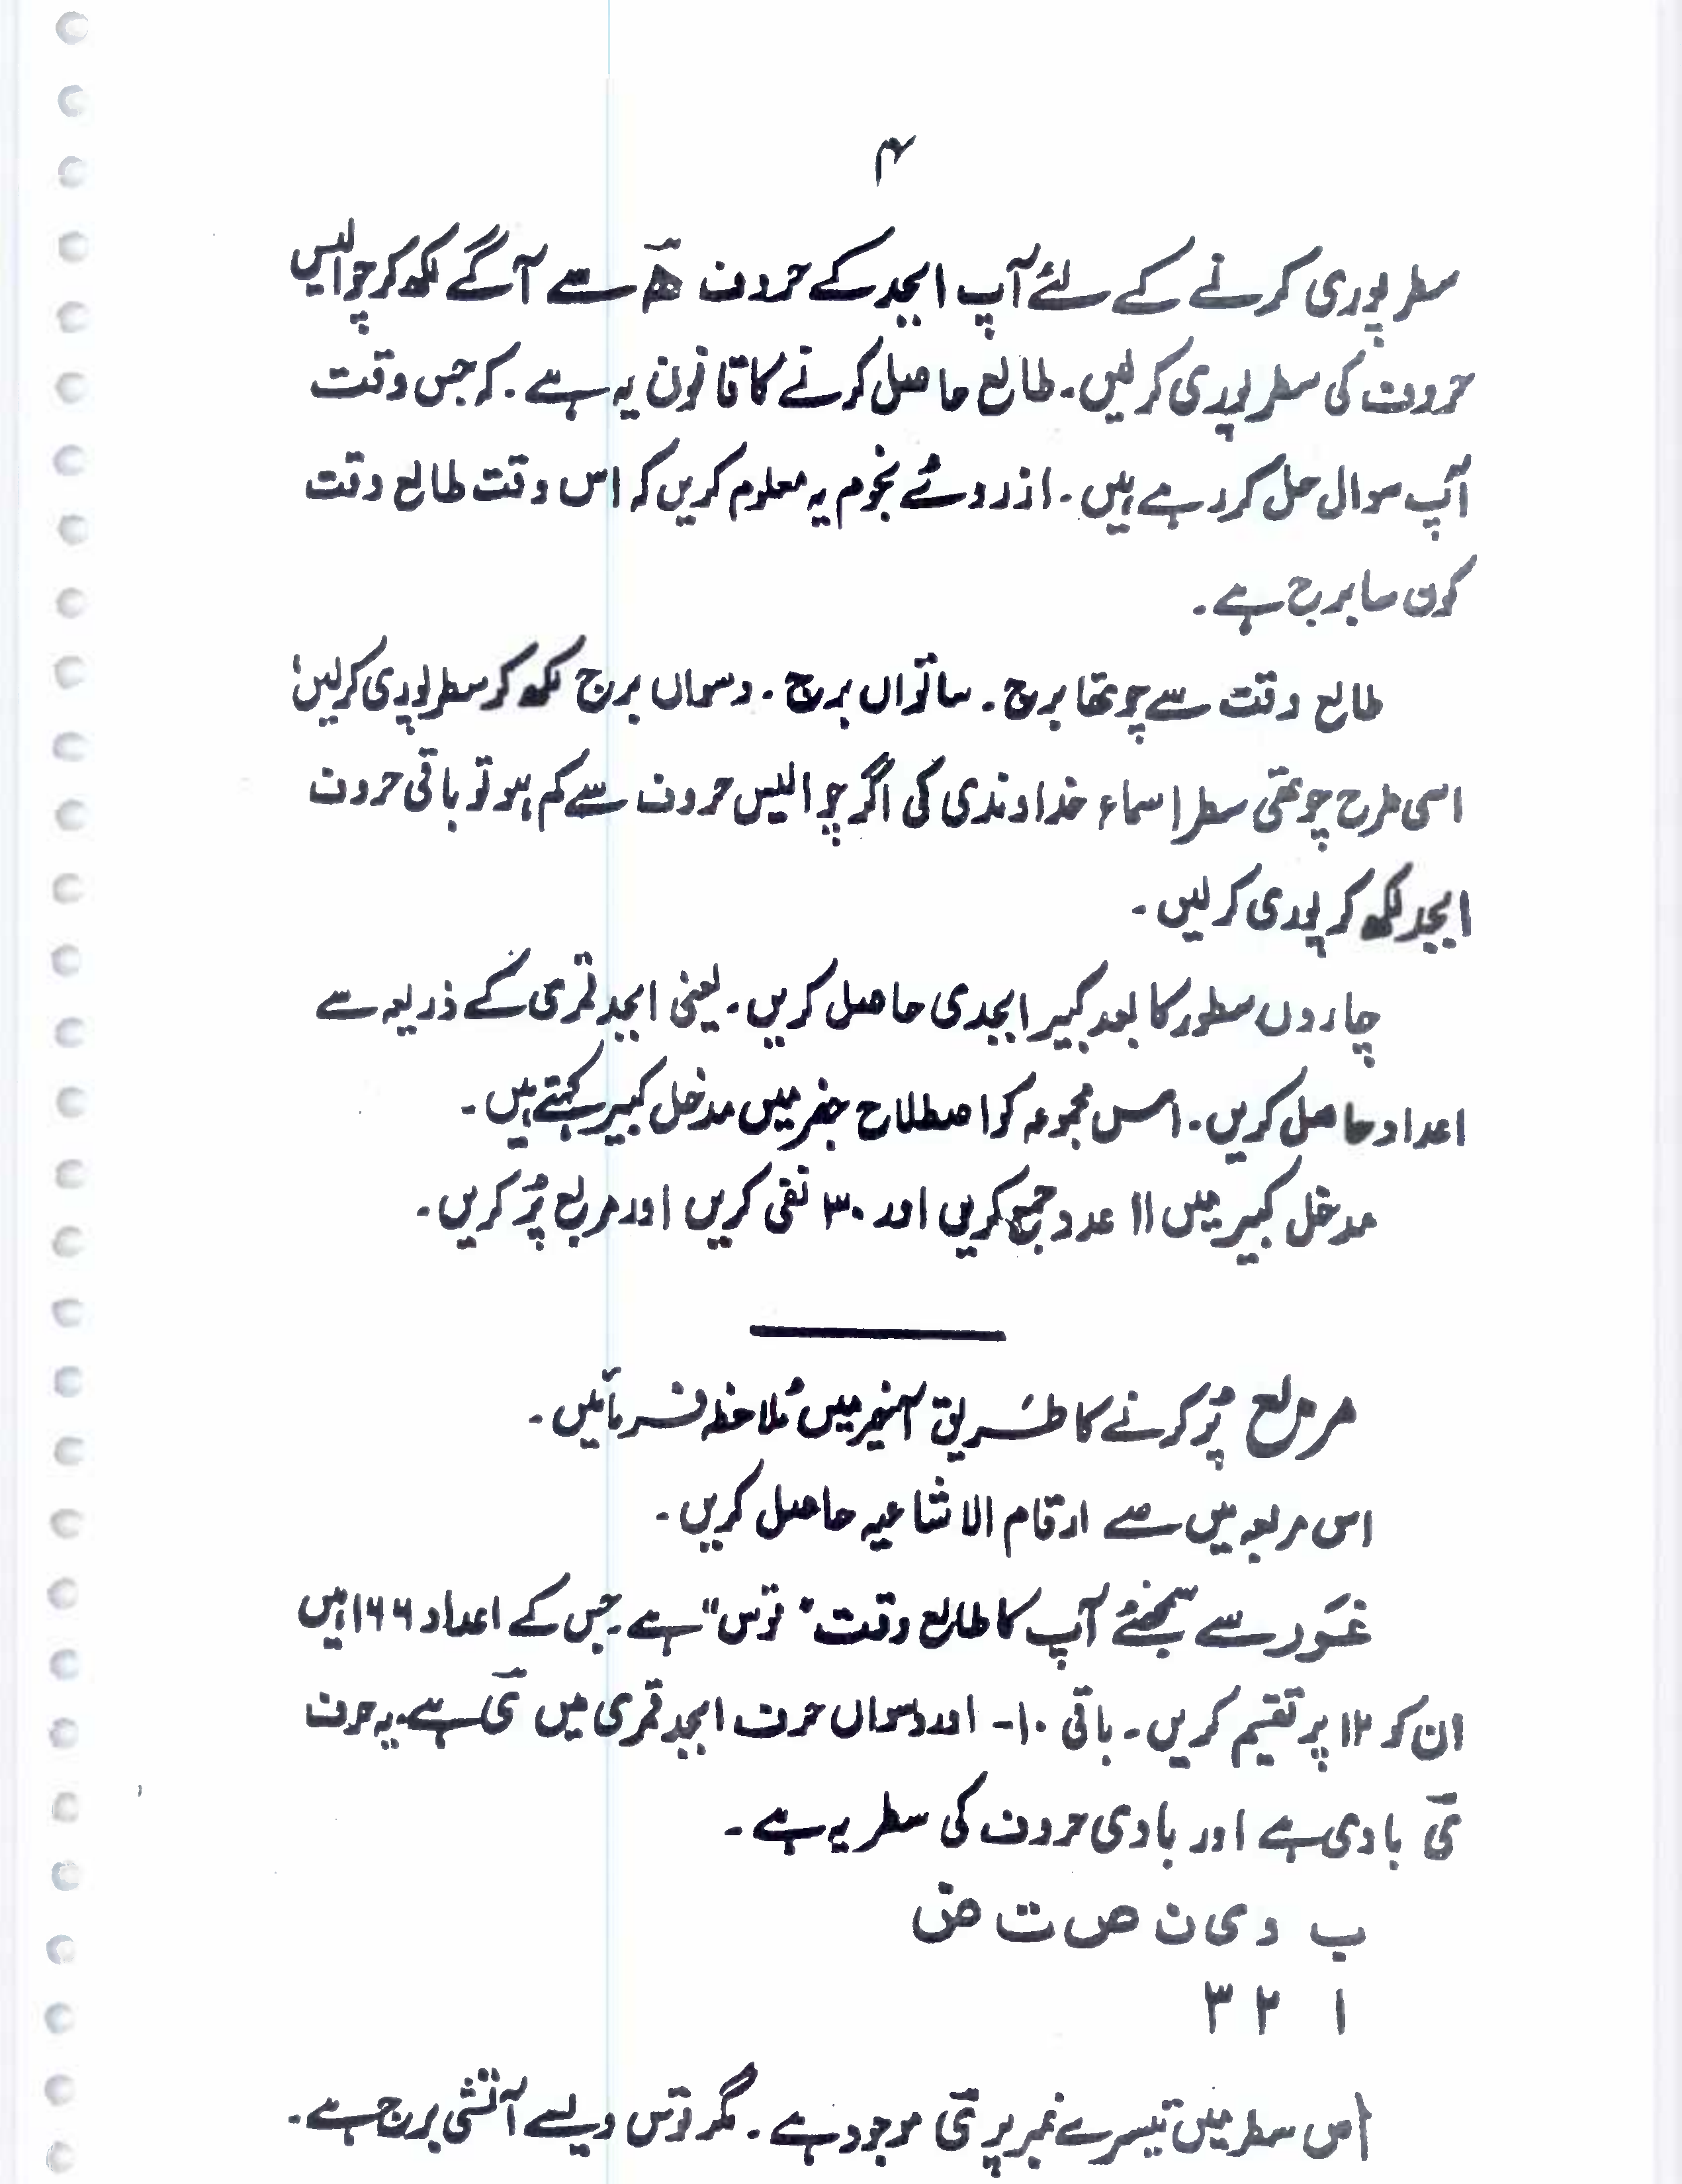 ۴
سطر پوری کرنے کے لئے آپ ابجد کے حروف ھ سے آگے لکھ کر چوالیس
حروف کی سطر پوری کر لیں۔ طالع حاصل کرنے کا قانون یہ ہے۔ کہ جس وقت
آپ سوال حل کر رہے ہیں۔ ازروئے نجوم یہ معلوم کریں کہ اس وقت طالع وقت
کون سا برج ہے۔
طالع وقت سے چوتھا برج۔ ساتواں برج۔ دسواں برج لکھ کر سطر پوری کر لیں
اسی طرح چوتھی سطر اسماء خداوندی کی اگر چوالیس حروف سے کم ہو تو باقی حروف
ابجد لکھ کر پوری کر لیں۔
چاروں سطور کا بعد کبیر ابجدی حاصل کریں۔ یعنی ابجد قمری کے ذریعہ سے
اعداد حاصل کریں۔ اس مجموعہ کو اصطلاح جفر میں مدخل کبیر کہتے ہیں۔
مدخل کبیر میں ۱۱ عدد جمع کریں اور ۳۰ نفی کریں اور مربع پُر کریں۔
مربع پُر کرنے کا طریق آخیر میں مُلاحظہ فرمائیں۔
اس مربعہ میں سے ارقام الاشاعیہ حاصل کریں۔
غور سے سمجھئے آپ کا طالع وقت "قوس" ہے۔ جس کے اعداد ۱۶۶ ہیں
ان کو ۱۲ پر تقسیم کریں۔ باقی ۱۰۔ اور دسواں حرف ابجد قمری میں ی ہے۔ یہ حرف
ی بادی ہے اور بادی حروف کی سطر یہ ہے۔
ب و ی ن ص ت ض
۱ ۲ ۳
اس سطر میں تیسرے نمبر پر ی موجود ہے۔ مگر قوس ویسے آتشی برج ہے۔